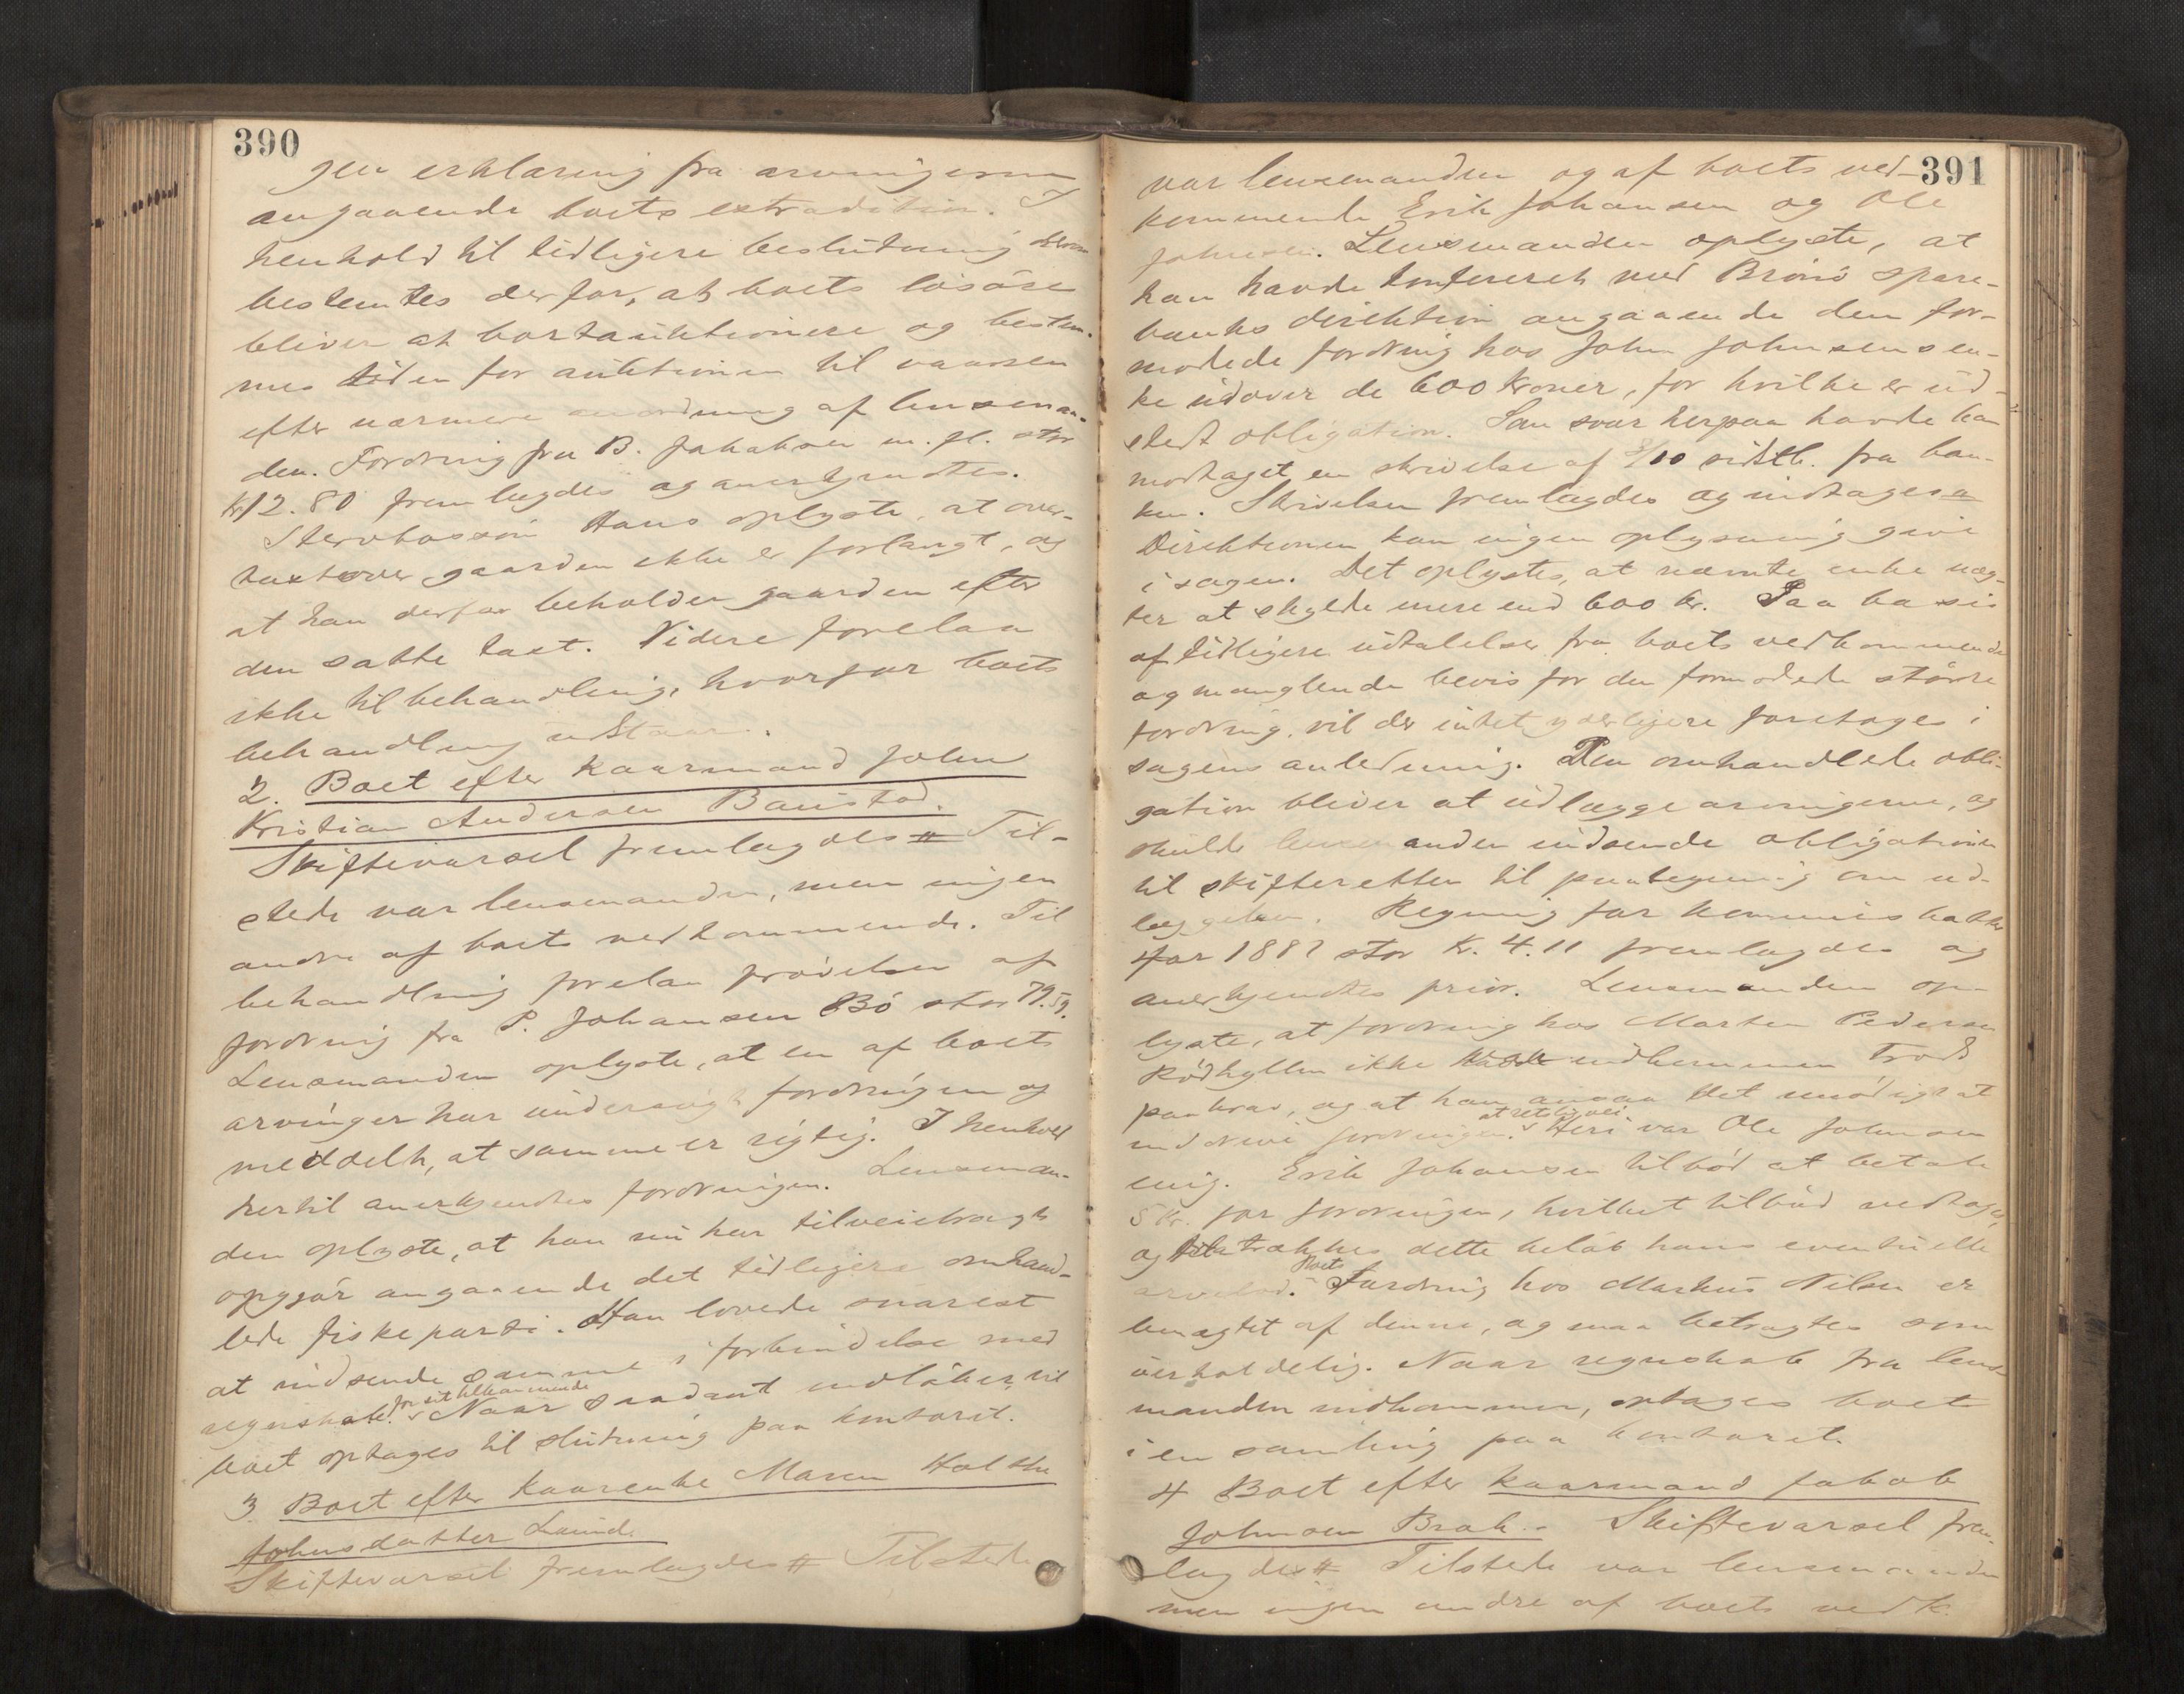 390
gen erklæring fra arvingerne
angaaende boets extradition. I
henhold til tidligere beslutning
bestemtes derfor, at boets løsøre
bliver at bortauktionere og bestem-
mes tiden for auktionen til vaaren
efter nærmere anordning af lensman-
den. Fordring fra B. Jakobsen m. fl. stor
kr 12.80 fremlagdes og anerkjendtes.
Stervbosøn Hans oplyste, at over-
taxt over gaarden ikke er forlangt, og
at han derfor beholder gaarden efter
den satte taxt. Videre forelaa
ikke til behandling, hvorfor boets
behandling udstaar.
2. Boet efter Kaarmand John
Kristian Andersen Baustad.
Skiftevarsel fremlagdes # Til-
stede var lensmanden, men ingen
andre af boets vedkommende. Til
behandling forelaa prøvelsen af
fordring fra P. Johansen Bø stor 79.59.
Lensmanden oplyste, at en af boets
arvinger har undersøgt fordringen og
meddelt, at samme er rigtig. I henhold
hertil anerkjendtes fordringen. Lensman-
den oplyste, at han nu har tilveiebragt
opgjør angaaende det tidligere omhand-
lede fiskeparti. Han lovede snarest
at indsende samme i forbindelse med
regnskab for sit tilkommende. Naar saadant indløber, vil
boet optages til slutning paa kontoret.
3. Boet efter Kaarenke Maren
Johnsdatter Lund.
Skiftevarsel fremlagdes # Tilstede
391
var lensmanden og af boets ved-
kommende Erik Johansen og Ole
Johnsen. Lensmanden oplyste, at
han havde konfereret med Brønø spare-
banks direktion angaaende den for-
modede fordring hos John Johnsens en-
ke udover de 600 Kroner, for hvilke er ud-
stedt obligation. Som svar herpaa havde han
modtaget en skrivelse af /10 sidstl. fra ban-
ken. Skrivelsen fremlagdes og indtages #
Direktionen kan ingen oplysning give
i sagen. Det oplystes, at nævnte enke næg-
ter at skylde mere end 600 kr. Paa basis
af tidligere udtalelser fra boets vedkommende
og manglende bevis for den formodede større
fordring, vil der intet yderligere foretages i
sagens anledning. Den omhandlede obli-
gation bliver at udlægge arvingerne, og
skulde lensmanden indsende obligationen
til skifteretten til paategning om ud-
læggelsen. Regning for kommuneskatter
for 1887 stor Kr. 4.11 fremlagdes og
anerkjendtes prior. Lensmanden op-
lyste, at fordring hos Morten Pedersen
Rødhyllen ikke indkommen trods
paakrav, og at han ansaa det unødigt at
inddrive fordringen ad retslig vei. Heri var Ole Johnsen
enig. Erik Johansen tilbød at betale
5 kr. for fordringen, hvilket tilbud vedtages,
og trækkes dette beløb hans eventuelle
arvelod. Boets Fordring hos Markus Nilsen er
benægtet af denne, og maa betragtes som
uerholdelig. Naar regnskab fra lens-
manden indkommer, optages boet
i en samling paa kontoret.
4 Boet efter kaarmand Jakob
Johnsen Brak. Skiftevarsel frem-
lagdes # Tilstede var lensmanden
men ingen andre af boets vedk.